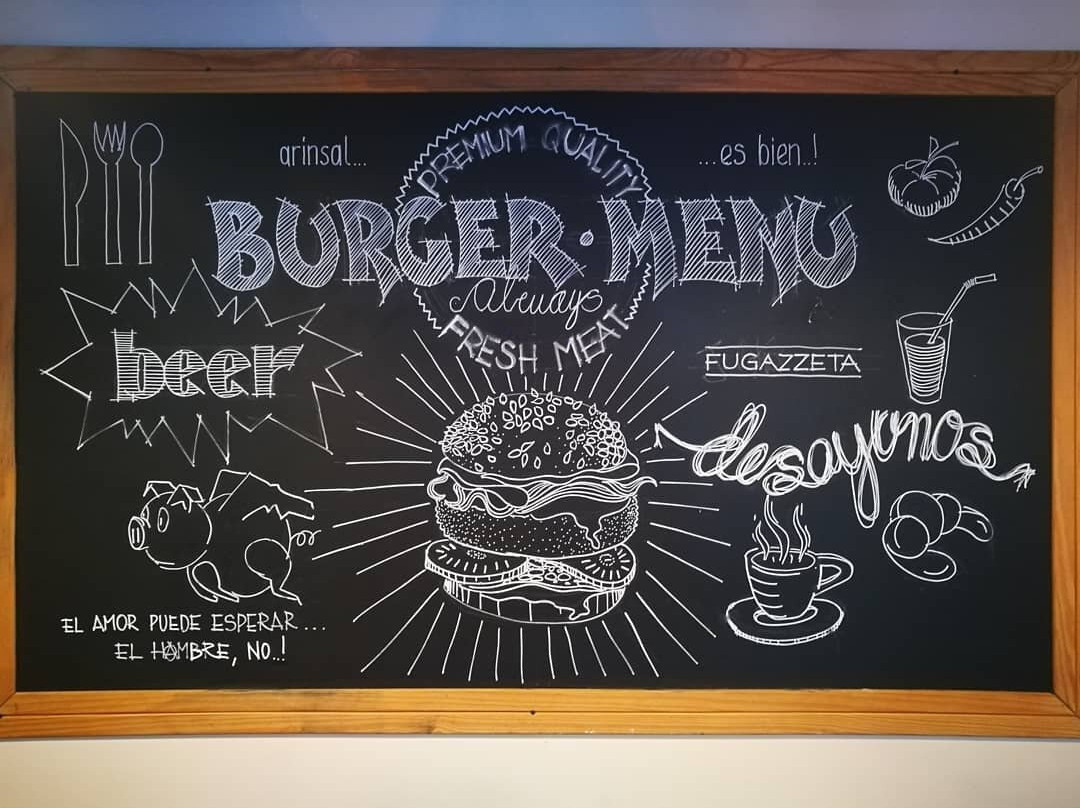 arinsal...
PREMIUM QUALITY
...es bien..!
BURGER·MENU
Always
FRESH MEAT
beer
FUGAZZETA
desayunos
EL AMOR PUEDE ESPERAR...
EL HAMBRE, NO..!